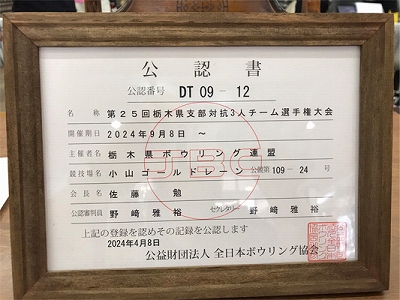 公認書
公認番号 DT 09 - 12
名称 第25回栃木県支部対抗3人チーム選手権大会
開催期日 2024年9月8日 ～
主催者名 栃木県ボウリング連盟
競技場名 小山ゴールドレーン 公競第109-24号
会長名 佐藤 勉
公認審判員 野﨑雅裕 セクレタリー 野﨑雅裕
上記の登録を認めその記録を公認します
2024年4月8日
公益財団法人 全日本ボウリング協会
JBC